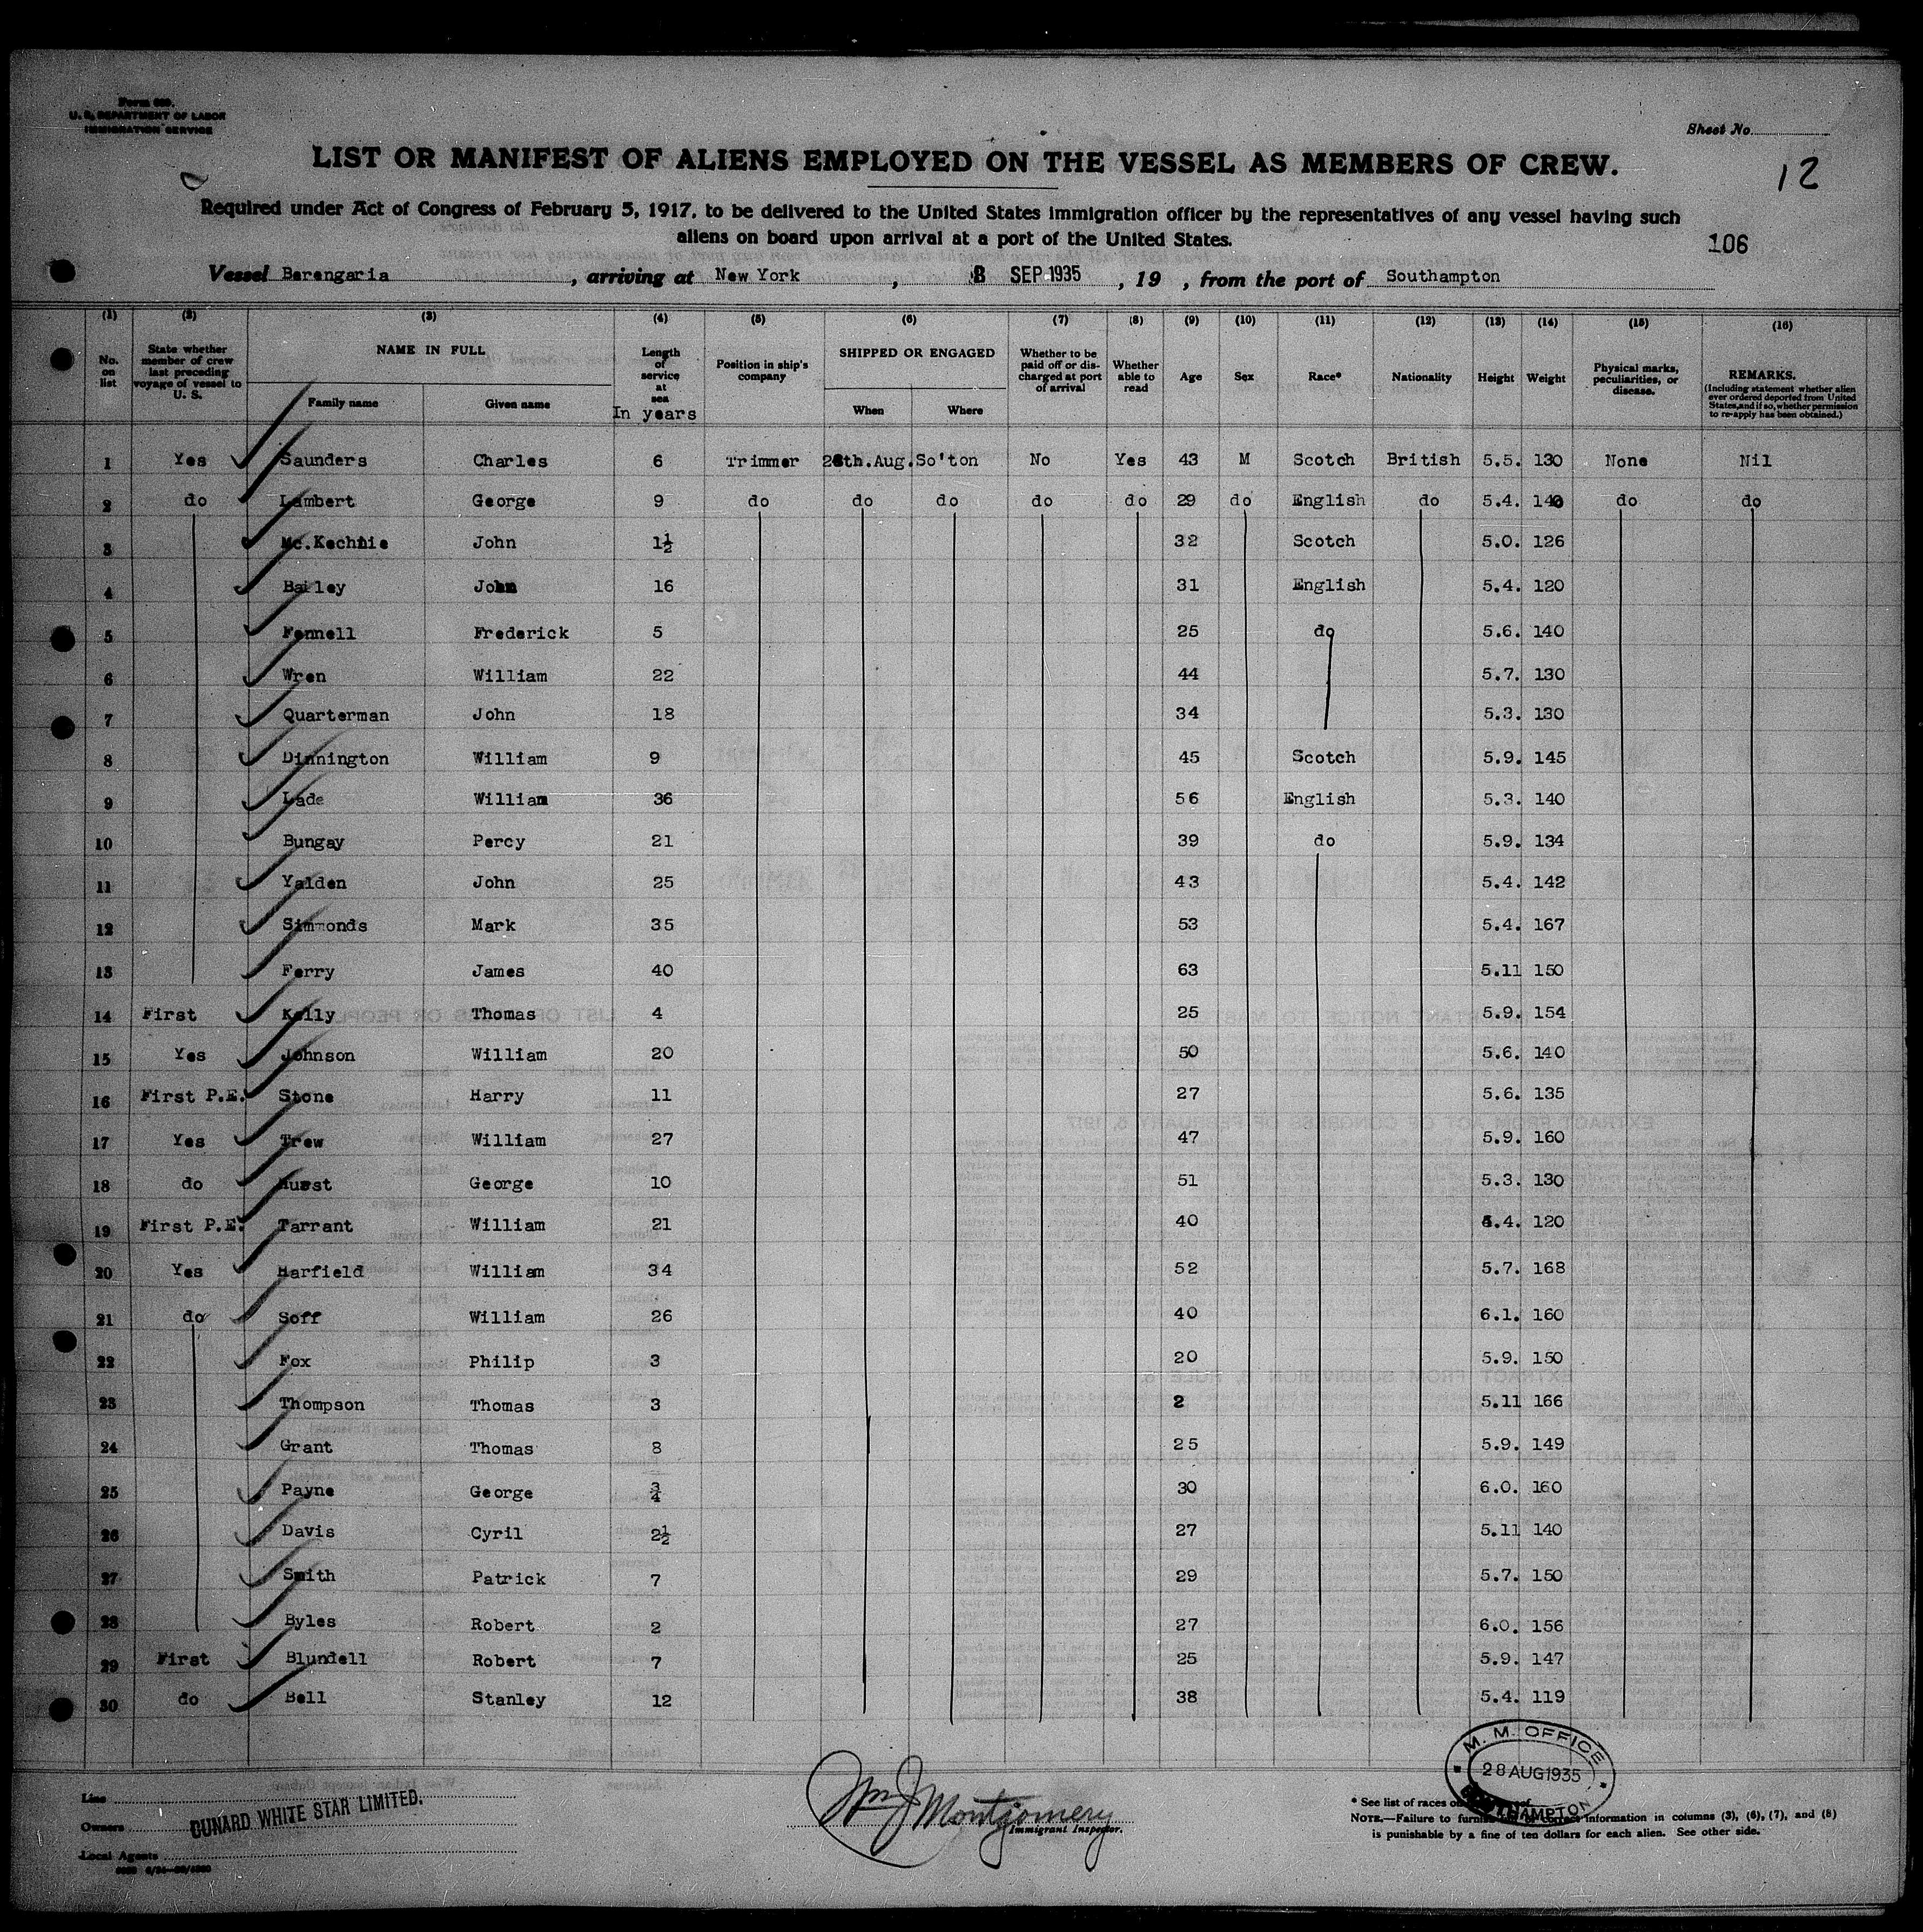 Form 680.
U. S. DEPARTMENT OF LABOR
IMMIGRATION SERVICE
Sheet No.
LIST OR MANIFEST OF ALIENS EMPLOYED ON THE VESSEL AS MEMBERS OF CREW.
12
Required under Act of Congress of February 5, 1917, to be delivered to the United States immigration officer by the representatives of any vessel having such
aliens on board upon arrival at a port of the United States.
106
Vessel Berengaria, arriving at New York, 3 SEP 1935, 19 , from the port of Southampton
(1) (2) (3) (4) (5) (6) (7) (8) (9) (10) (11) (12) (13) (14) (15) (16)
No. on list State whether member of crew last preceding voyage of vessel to U. S. NAME IN FULL Family name Given name Length of service at sea In years Position in ship's company SHIPPED OR ENGAGED When Where Whether to be paid off or discharged at port of arrival Whether able to read Age Sex Race* Nationality Height Weight Physical marks, peculiarities, or disease. REMARKS. (Including statement whether alien ever ordered deported from United States, and if so, whether permission to re-apply has been obtained.)
1 Yes Saunders Charles 6 Trimmer 28th.Aug. So'ton No Yes 43 M Scotch British 5.5. 130 None Nil
2 do Lambert George 9 do do do do do 29 do English do 5.4. 140 do do
3 Mc.Kechnie John 1½ 32 Scotch 5.0. 126
4 Bailey John 16 31 English 5.4. 120
5 Fennell Frederick 5 25 do 5.6. 140
6 Wren William 22 44 5.7. 130
7 Quarterman John 18 34 5.3. 130
8 Dinnington William 9 45 Scotch 5.9. 145
9 Lade William 36 56 English 5.3. 140
10 Bungay Percy 21 39 do 5.9. 134
11 Yalden John 25 43 5.4. 142
12 Simmonds Mark 35 53 5.4. 167
13 Ferry James 40 63 5.11 150
14 First Kelly Thomas 4 25 5.9. 154
15 Yes Johnson William 20 50 5.6. 140
16 First P.E. Stone Harry 11 27 5.6. 135
17 Yes Trew William 27 47 5.9. 160
18 do Hurst George 10 51 5.3. 130
19 First P.E. Tarrant William 21 40 5.4. 120
20 Yes Harfield William 34 52 5.7. 168
21 do Soff William 26 40 6.1. 160
22 Fox Philip 3 20 5.9. 150
23 Thompson Thomas 3 2 5.11 166
24 Grant Thomas 8 25 5.9. 149
25 Payne George ¾ 30 6.0. 160
26 Davis Cyril 2½ 27 5.11 140
27 Smith Patrick 7 29 5.7. 150
28 Byles Robert 2 27 6.0. 156
29 First Blundell Robert 7 25 5.9. 147
30 do Bell Stanley 12 38 5.4. 119
M. M. OFFICE
28 AUG 1935
SOUTHAMPTON
Line
Owners CUNARD WHITE STAR LIMITED.
Local Agents
Wm J Montgomery
Immigrant Inspector.
* See list of races on
NOTE.—Failure to furnish or correct information in columns (3), (6), (7), and (8)
is punishable by a fine of ten dollars for each alien. See other side.